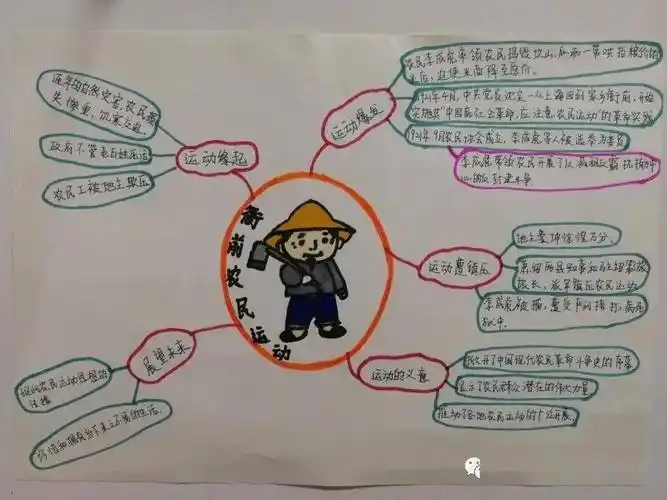 衙前农民运动
运动缘起
连年的自然灾害,农民损
失惨重,饥寒交迫.
政府不管老百姓死活
农民工被地主欺压
运动爆发
农民李成虎率领农民捣毁坎山,瓜沥一带哄抬粮价的
米店,迫使米商降至原价.
1921年4月,中共党员沈定一从上海回到家乡衙前,开始
实施其"中国的社会革命,应注意农民运动"的革命实践
1921年9月农民协会成立,李成虎等人被选举为委员
李成虎带领农民开展了以减租反霸抗捐为中
心的反封建斗争
运动遭镇压
地主豪绅惊惶万分.
萧绍两县知事和
族长,派军镇压农民运动
李成虎被捕,遭受严刑拷打,病死
狱中.
运动的义意
掀开了中国现代农民革命斗争史的序幕
显示了农民群众潜在的伟大力量
推动了各地农民运动的广泛开展.
展望未来
现代农民运动思想的
传播
珍惜和拥有当下来之不易的生活.